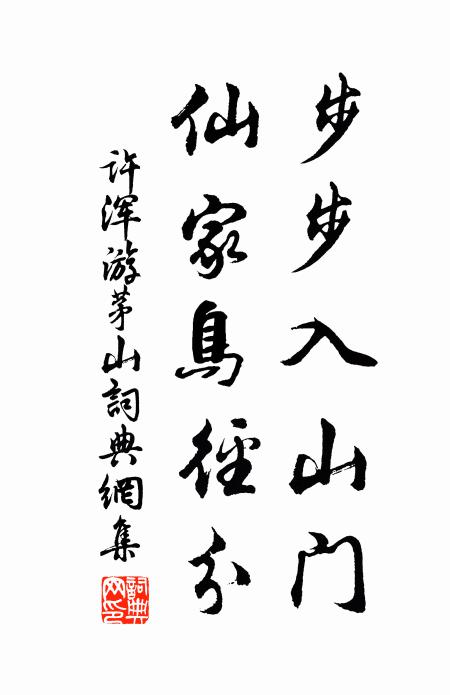 步步入山门
仙家鳥徑分
许浑游茅山詞典網集
詞典网印